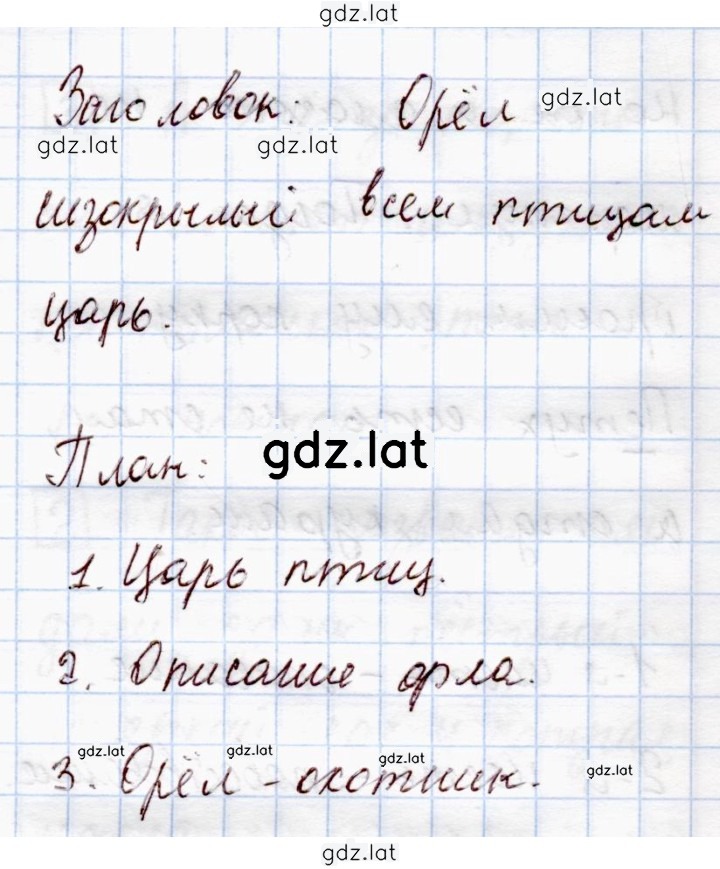 gdz.lat
Заголовок: Орёл gdz.lat
gdz.lat gdz.lat
шизокрылый всем птицам
царь.
План: gdz.lat
1. Царь птиц.
2. Описание орла.
gdz.lat gdz.lat gdz.lat gdz.lat
3. Орёл - охотник.
gdz.lat